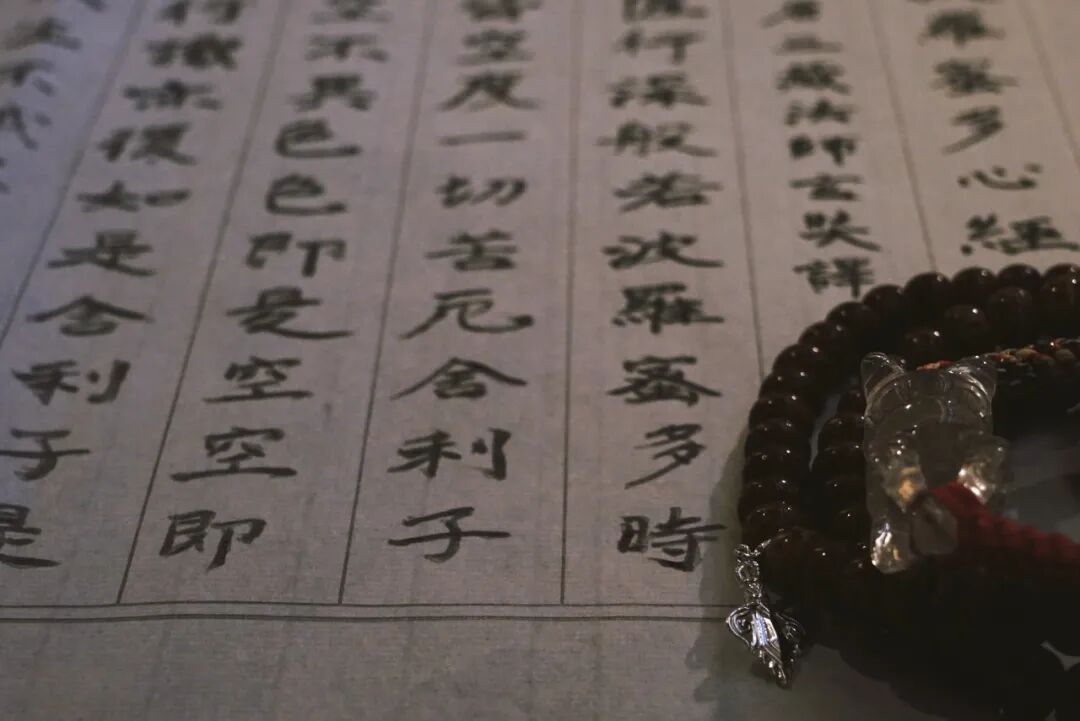 羅蜜多心經
唐三藏法師玄奘譯
薩行深般若波羅蜜多時
皆空度一切苦厄舍利子
空不異色色即是空空即
行識亦復如是舍利子是
生不滅